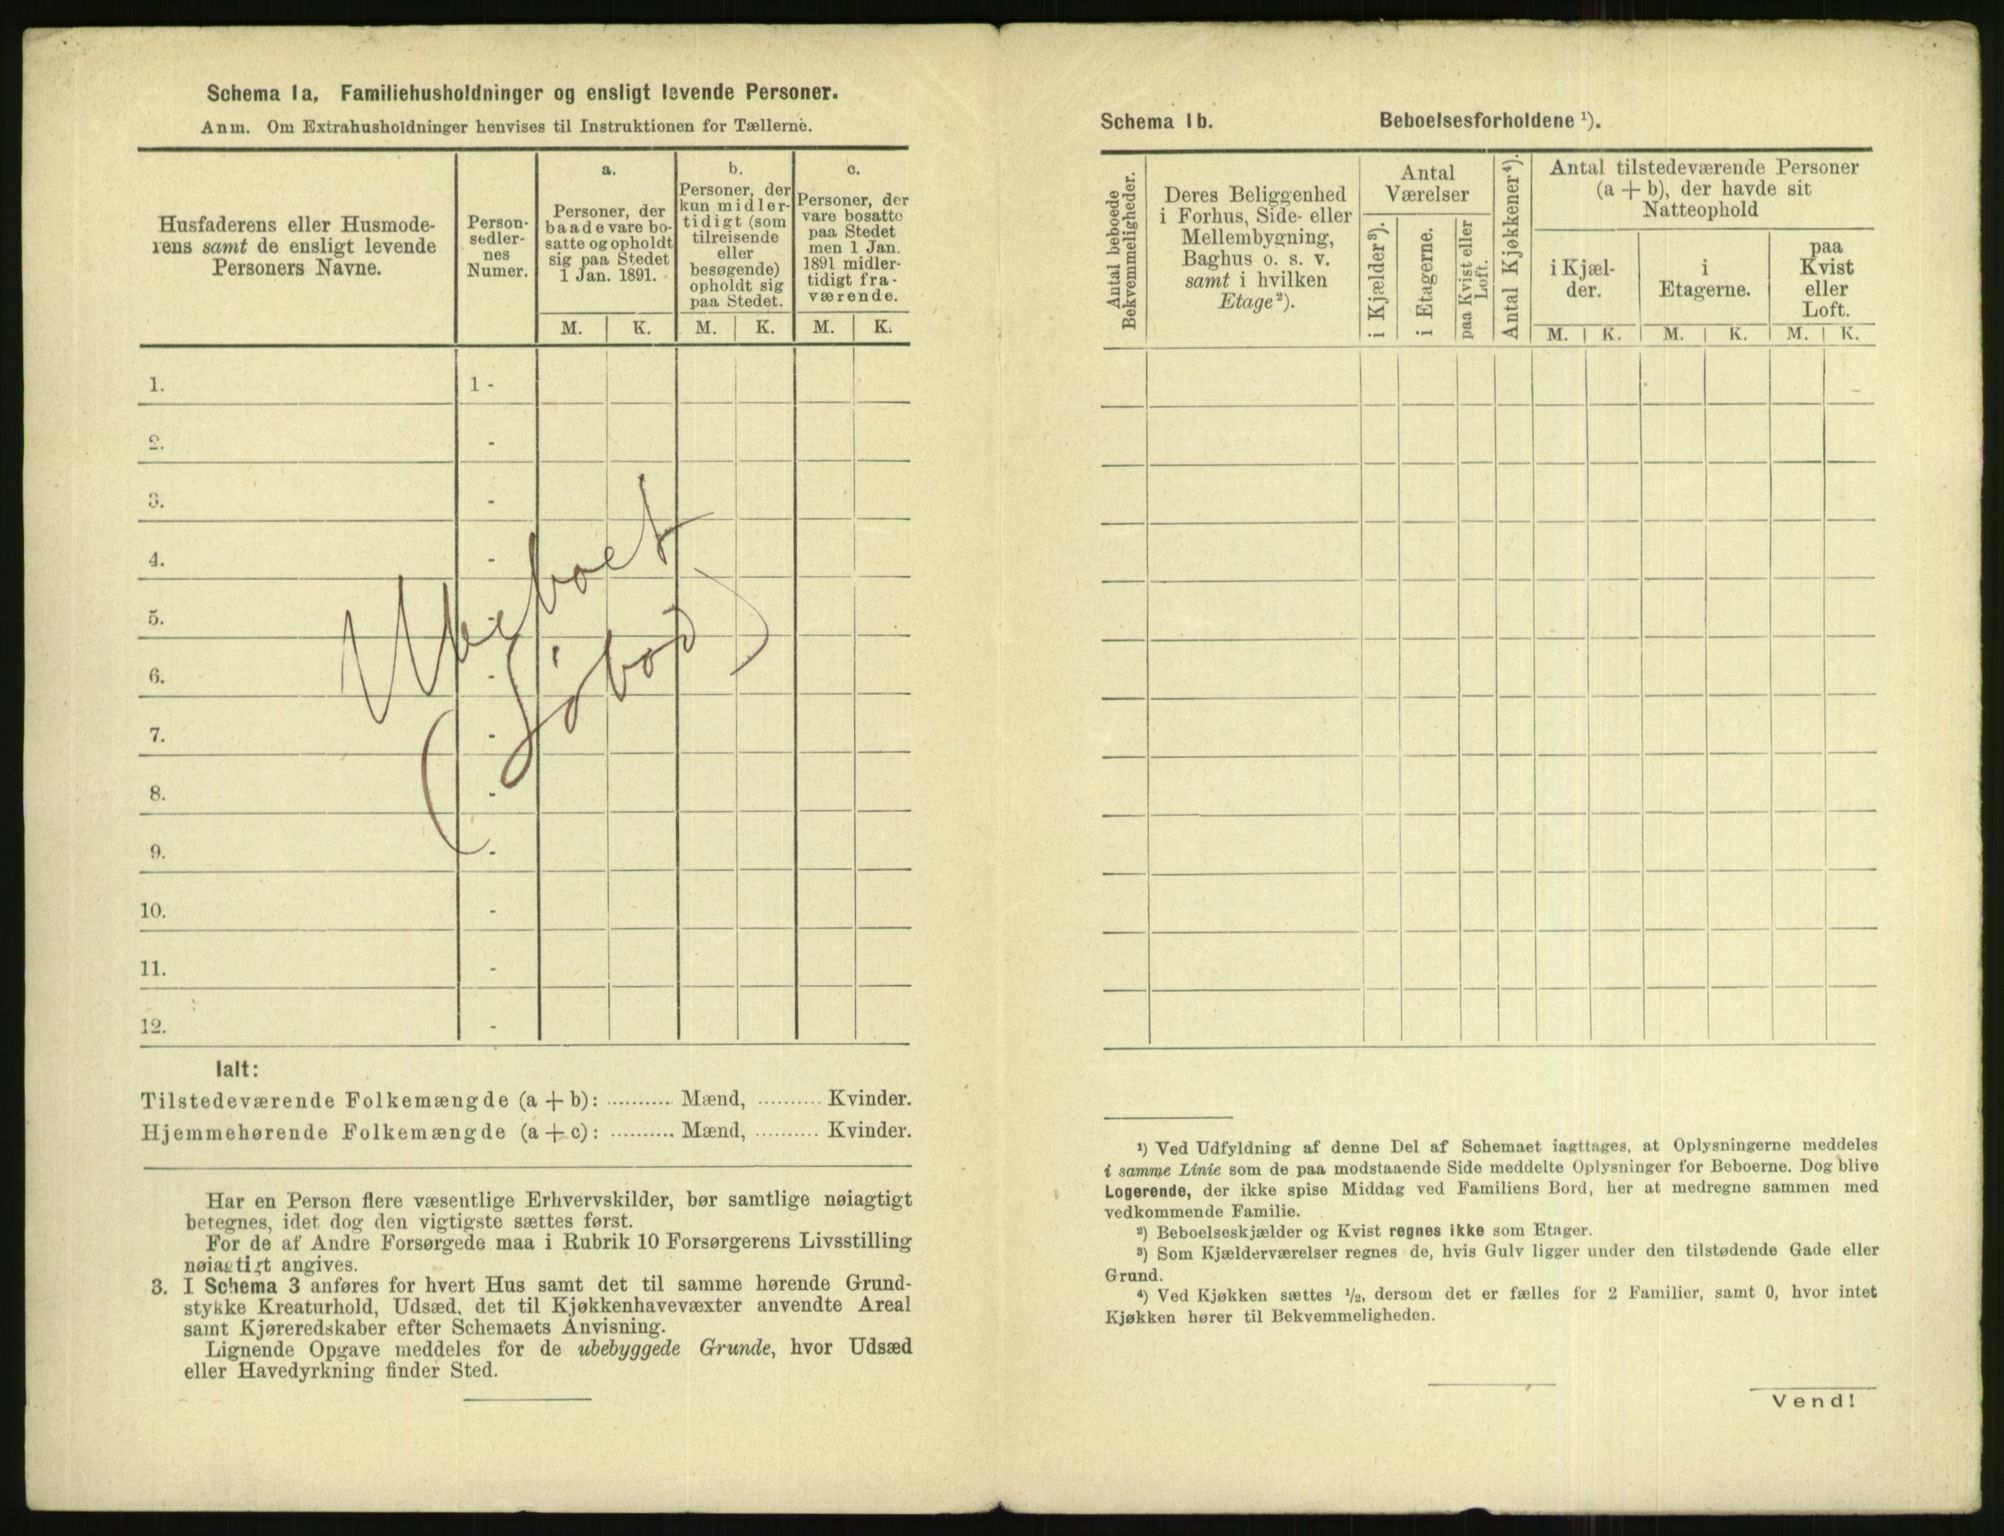 Schema 1a, Familiehusholdninger og ensligt levende Personer.
Anm. Om Extrahusholdninger henvises til Instruktionen for Tællerne.
Husfaderens eller Husmode-
rens samt de ensligt levende
Personers Navne.
Person-
sedler-
nes
Numer.
a.
Personer, der
baade vare bo-
satte og opholdt
sig paa Stedet
1 Jan. 1891.
b.
Personer, der
kun midler-
tidigt (som
tilreisende
eller
besøgende)
opholdt sig
paa Stedet.
c.
Personer, der
vare bosatte
paa Stedet
men 1 Jan.
1891 midler-
tidigt fra-
værende.
M. K. M. K. M. K.
1. 1 -
2. -
3. -
4. -
5. -
6. -
7. -
8. -
9. -
10. -
11. -
12. -
Ubeboet
(Søbod)
Ialt:
Tilstedeværende Folkemængde (a + b): .......... Mænd, .......... Kvinder.
Hjemmehørende Folkemængde (a + c): .......... Mænd, .......... Kvinder.
Har en Person flere væsentlige Erhvervskilder, bør samtlige nøiagtigt
betegnes, idet dog den vigtigste sættes først.
For de af Andre Forsørgede maa i Rubrik 10 Forsørgerens Livsstilling
nøiagtigt angives.
3. I Schema 3 anføres for hvert Hus samt det til samme hørende Grund-
stykke Kreaturhold, Udsæd, det til Kjøkkenhavevæxter anvendte Areal
samt Kjøreredskaber efter Schemaets Anvisning.
Lignende Opgave meddeles for de ubebyggede Grunde, hvor Udsæd
eller Havedyrkning finder Sted.
Schema 1b. Beboelsesforholdene ¹).
Antal beboede
Bekvemmeligheder.
Deres Beliggenhed
i Forhus, Side- eller
Mellembygning,
Baghus o. s. v.
samt i hvilken
Etage²).
Antal
Værelser
i Kjælder³).
i Etagerne.
paa Kvist eller
Loft.
Antal Kjøkkener⁴).
Antal tilstedeværende Personer
(a + b), der havde sit
Natteophold
i Kjæl-
der.
i
Etagerne.
paa
Kvist
eller
Loft.
M. K. M. K. M. K.
¹) Ved Udfyldning af denne Del af Schemaet iagttages, at Oplysningerne meddeles
i samme Linie som de paa modstaaende Side meddelte Oplysninger for Beboerne. Dog blive
Logerende, der ikke spise Middag ved Familiens Bord, her at medregne sammen med
vedkommende Familie.
²) Beboelseskjælder og Kvist regnes ikke som Etager.
³) Som Kjælderværelser regnes de, hvis Gulv ligger under den tilstødende Gade eller
Grund.
⁴) Ved Kjøkken sættes ½, dersom det er fælles for 2 Familier, samt 0, hvor intet
Kjøkken hører til Bekvemmeligheden.
Vend!